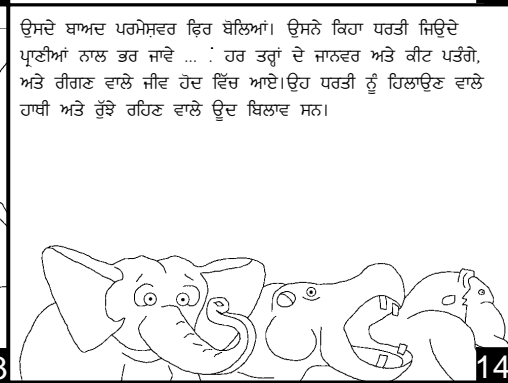 ਉਸਦੇ ਬਾਅਦ ਪਰਮੇਸ਼ਵਰ ਫਿਰ ਬੋਲਿਆਂ। ਉਸਨੇ ਕਿਹਾ ਧਰਤੀ ਜਿਉਦੇ
ਪ੍ਰਾਣੀਆਂ ਨਾਲ ਭਰ ਜਾਵੇ ... : ਹਰ ਤਰ੍ਹਾਂ ਦੇ ਜਾਨਵਰ ਅਤੇ ਕੀਟ ਪਤੰਗੇ,
ਅਤੇ ਰੀਗਣ ਵਾਲੇ ਜੀਵ ਹੋਦ ਵਿੱਚ ਆਏ।ਉਹ ਧਰਤੀ ਨੂੰ ਹਿਲਾਉਣ ਵਾਲੇ
ਹਾਥੀ ਅਤੇ ਰੁੱਝੇ ਰਹਿਣ ਵਾਲੇ ਊਦ ਬਿਲਾਵ ਸਨ।
14